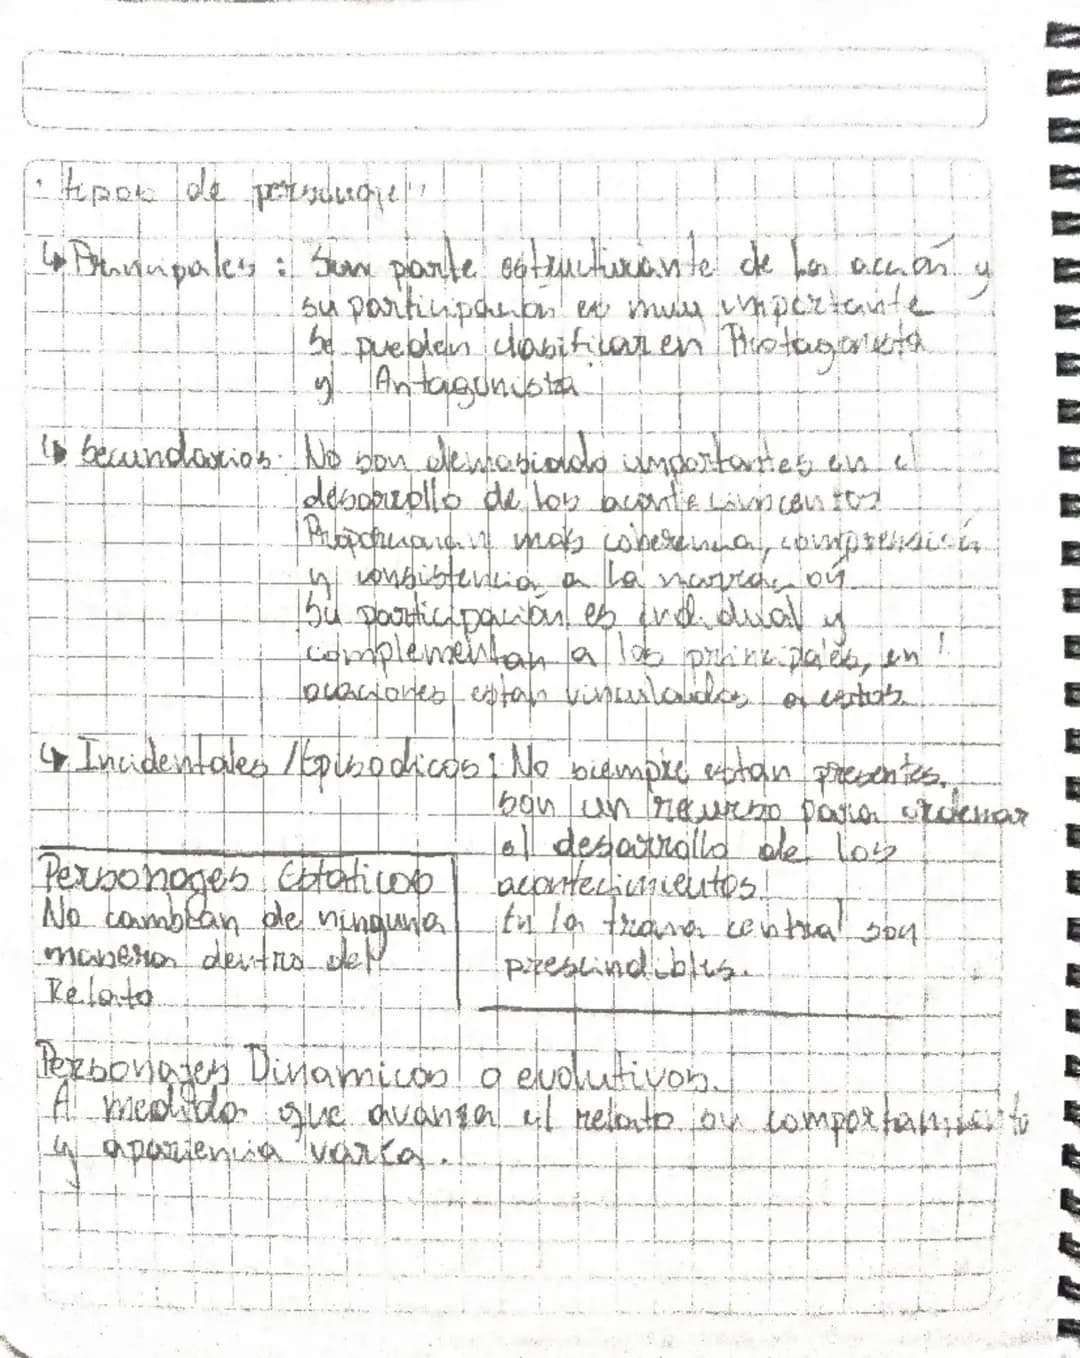 · tipos de personaje
↳ Principales : Son parte estructurante de la acción y
su participacion es muy importante
Se pueden clasificar en Protagonista
y Antagonista
↳ Secundarios: No son demasiado importantes en el
desarrollo de los acontecimientos
Proporcionan más coherencia, comprensión
y consistencia a la narración
Su participación es individual y
complementan a los principales, en
ocaciones estan vinculados a estos.
↳ Incidentales / Episodicos: No siempre estan presentes.
son un recurso para ordenar
el desarrollo de los
acontecimientos.
En la trama central son
prescindibles.
Personages Estaticos
No cambian de ninguna
manera dentro del
Relato
Personajes Dinamicos o evolutivos.
A medida que avanza el relato su comportamiento
y apariencia varía.